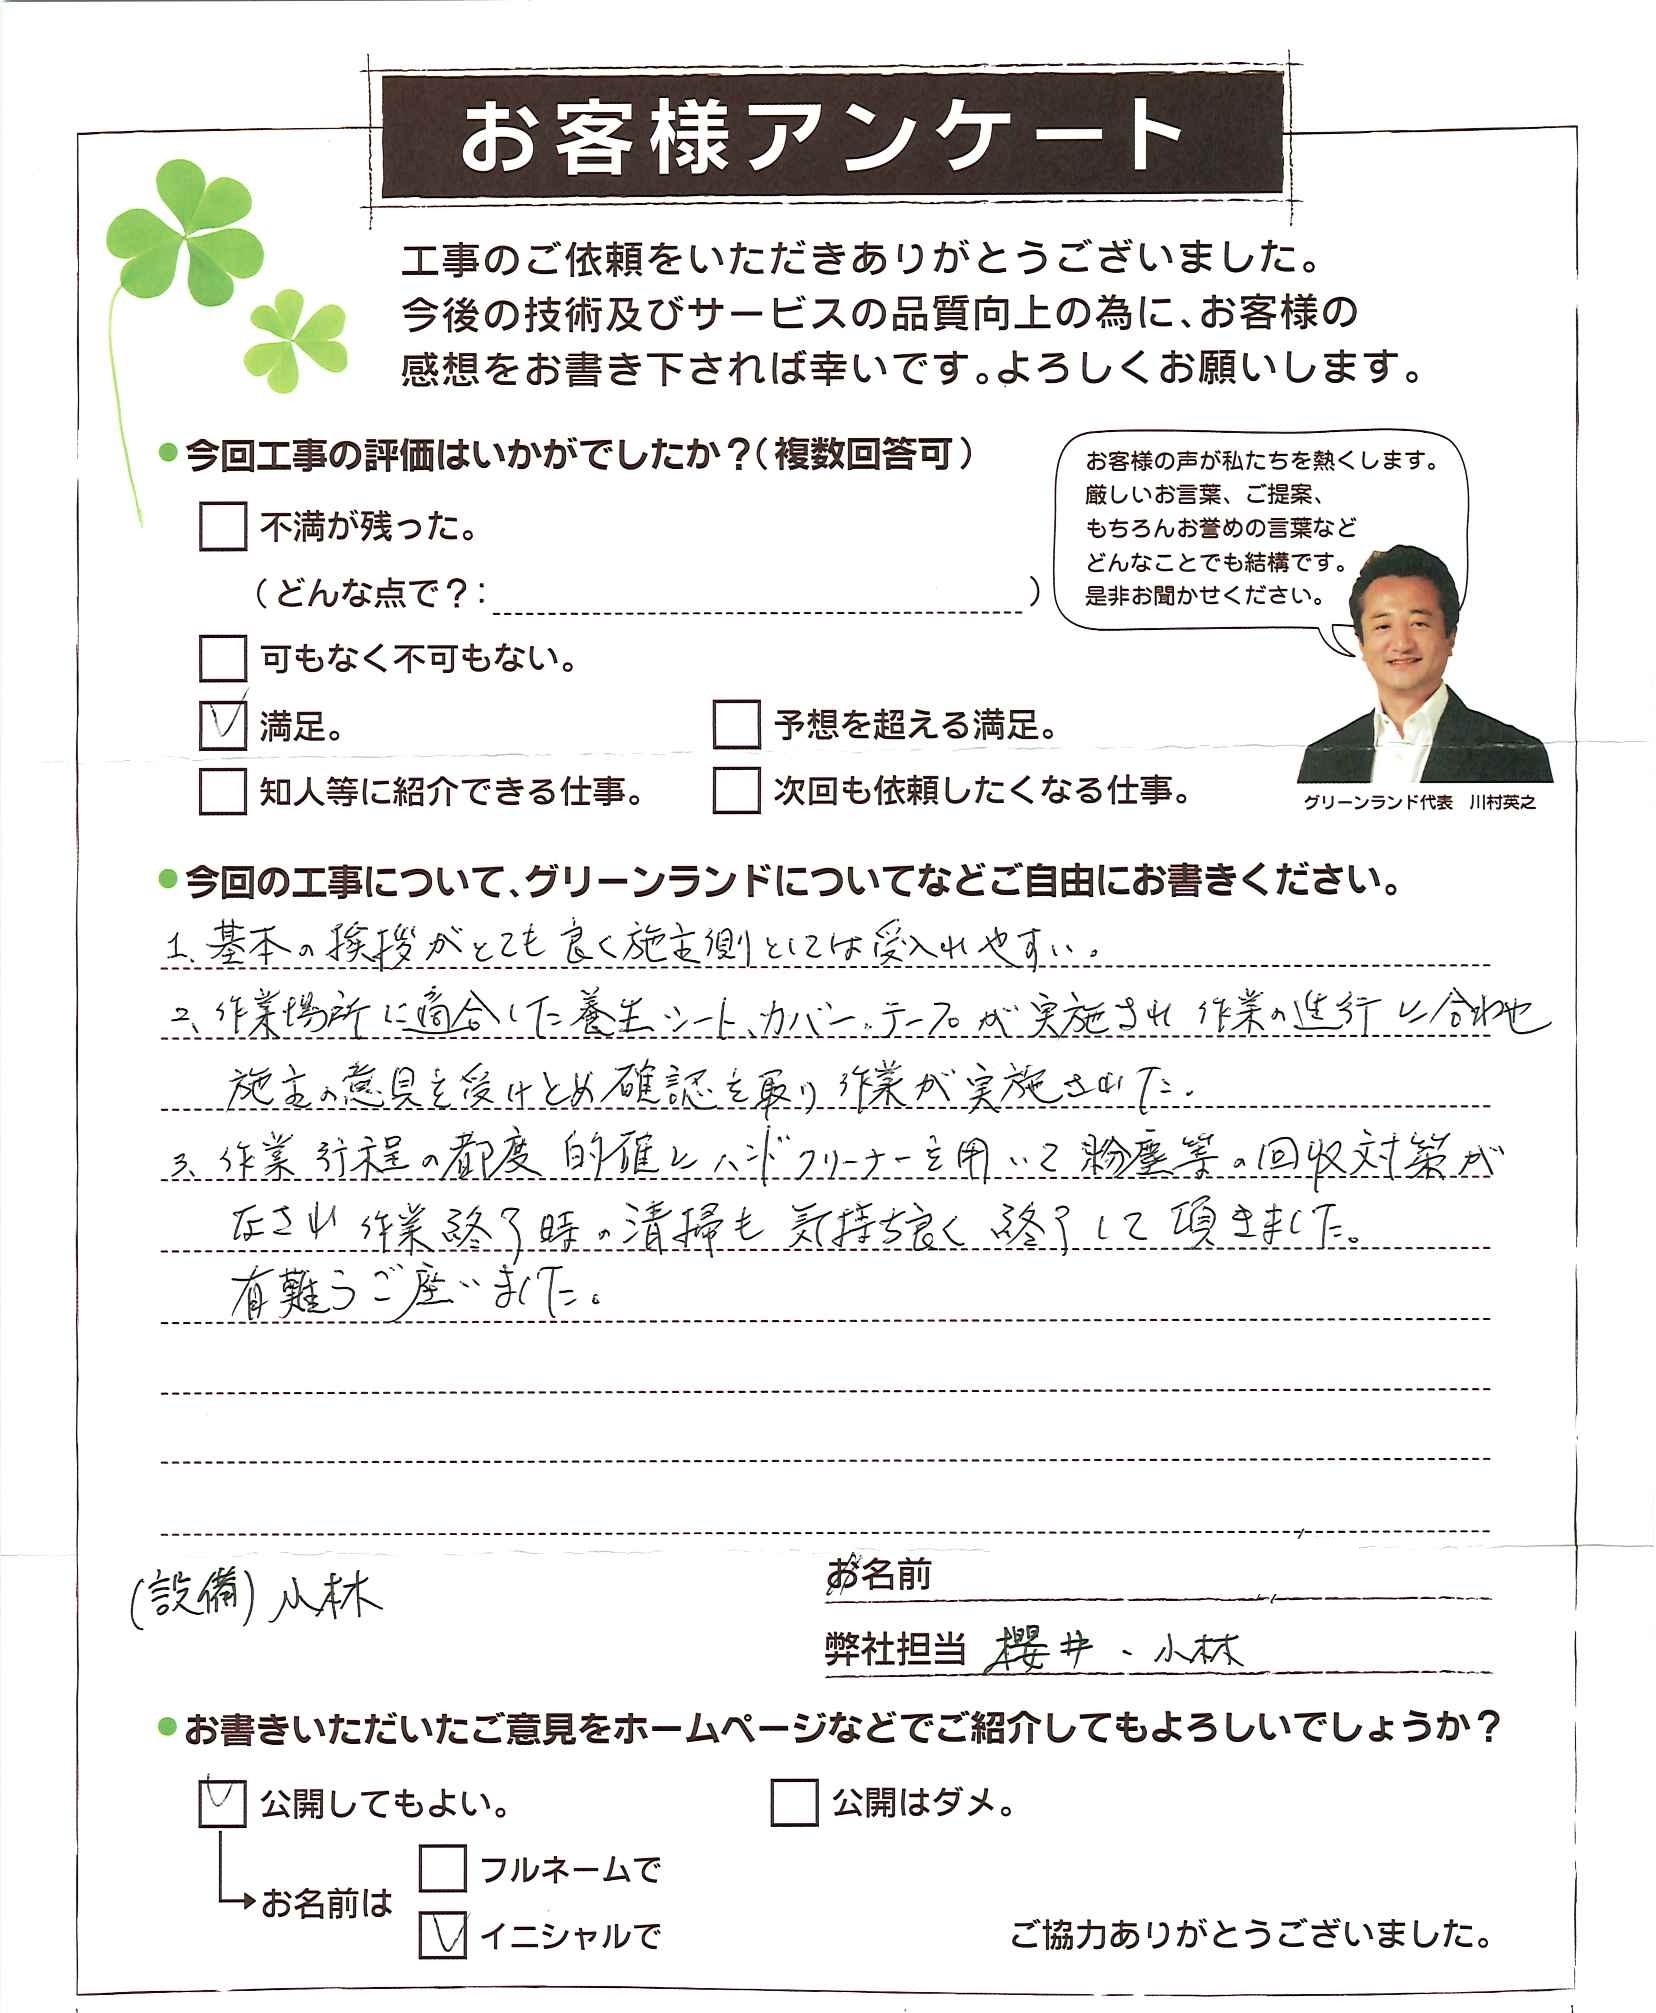 お客様アンケート
工事のご依頼をいただきありがとうございました。
今後の技術及びサービスの品質向上の為に、お客様の
感想をお書き下されば幸いです。よろしくお願いします。
●今回工事の評価はいかがでしたか？（複数回答可）
お客様の声が私たちを熱くします。
厳しいお言葉、ご提案、
もちろんお誉めの言葉など
どんなことでも結構です。
是非お聞かせください。
不満が残った。
（どんな点で？：　　　　）
可もなく不可もない。
満足。
予想を超える満足。
知人等に紹介できる仕事。
次回も依頼したくなる仕事。
グリーンランド代表　川村英之
●今回の工事について、グリーンランドについてなどご自由にお書きください。
1、基本の挨拶がとても良く施主側としては受入れやすい。
2、作業場所に適合した養生シート、カバー、テープが実施され作業の進行に合わせ
施主の意見を受けとめ確認を取り作業が実施されました。
3、作業行程の都度的確にハンドクリーナーを用いて粉塵等の回収対策が
なされ作業終了時の清掃も気持ち良く終了して頂きました。
有難うご座いました。
(設備)小林
お名前
弊社担当 櫻井、小林
●お書きいただいたご意見をホームページなどでご紹介してもよろしいでしょうか？
公開してもよい。
公開はダメ。
お名前は
フルネームで
イニシャルで
ご協力ありがとうございました。